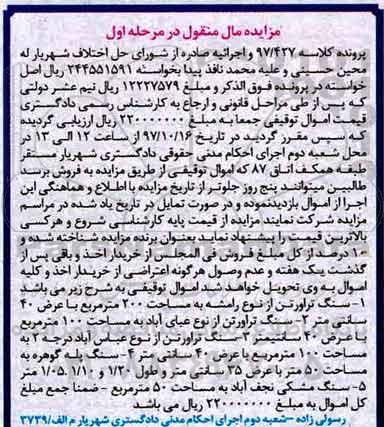 مزایده مال منقول در مرحله اول
پرونده کلاسه ۹۷/۴۲۷ و اجرائیه صادره از شورای حل اختلاف شهریار له
محین حسینی و علیه محمد نافذ پیدا بخواسته ۲۴۴۵۵۱۵۹۱ ریال اصل
خواسته در پرونده فوق الذکر و مبلغ ۱۲۲۲۷۵۷۹ ریال نیم عشر دولتی
که پس از طی مراحل قانونی و ارجاع به کارشناس رسمی دادگستری
قیمت اموال توقیفی جمعا به مبلغ ۲۲۰۰۰۰۰۰۰ ریال ارزیابی گردیده
که سپس مقرر گردید در تاریخ ۹۷/۱۰/۱۶ از ساعت ۱۲ الی ۱۳ در
محل شعبه دوم اجرای احکام مدنی حقوقی دادگستری شهریار مستقر
طبقه همکف اتاق ۸۷ که اموال توقیفی از طریق مزایده به فروش برسد
طالبین میتوانند پنج روز جلوتر از تاریخ مزایده با اطلاع و هماهنگی این
اجرا از اموال بازدیدنموده و در صورت تمایل در تاریخ یاد شده در مراسم
مزایده شرکت نمایند مزایده از قیمت پایه کارشناسی شروع و هرکسی
بالاترین قیمت را پیشنهاد نماید بعنوان برنده مزایده شناخته شده و
۱۰ درصد از کل مبلغ فروش فی المجلس از خریدار اخذ و باقی پس از
گذشت یک هفته و عدم وصول هرگونه اعتراضی از خریدار اخذ و کلیه
اموال به وی تحویل خواهد شد اموال توقیفی به شرح زیر می باشد
۱- سنگ تراورتن از نوع رامشه به مساحت ۲۰۰ مترمربع با عرض ۴۰
سانتی متر ۲-سنگ تراورتن از نوع عباس آباد به مساحت ۱۰۰ مترمربع
با عرض ۴۰ سانتیمتر ۳-سنگ تراورتن از نوع عباس آباد درجه ۲ به
مساحت ۱۰۰ مترمربع با عرض ۴۰ سانتی متر ۴- سنگ پله گوهره به
مساحت ۵۰ متر با عرض ۳۵ سانتی متر و طول ۱/۲۰ و ۱/۱۰ ۱/۰۵ متر
۵- سنگ مشکی نجف آباد به مساحت ۵۰ مترمربع - ضمنا جمع مبلغ
کل اموال به مبلغ ۲۲۰۰۰۰۰۰۰ ریال می باشد
رسولی زاده -شعبه دوم اجرای احکام مدنی دادگستری شهریار م الف/۳۷۳۹